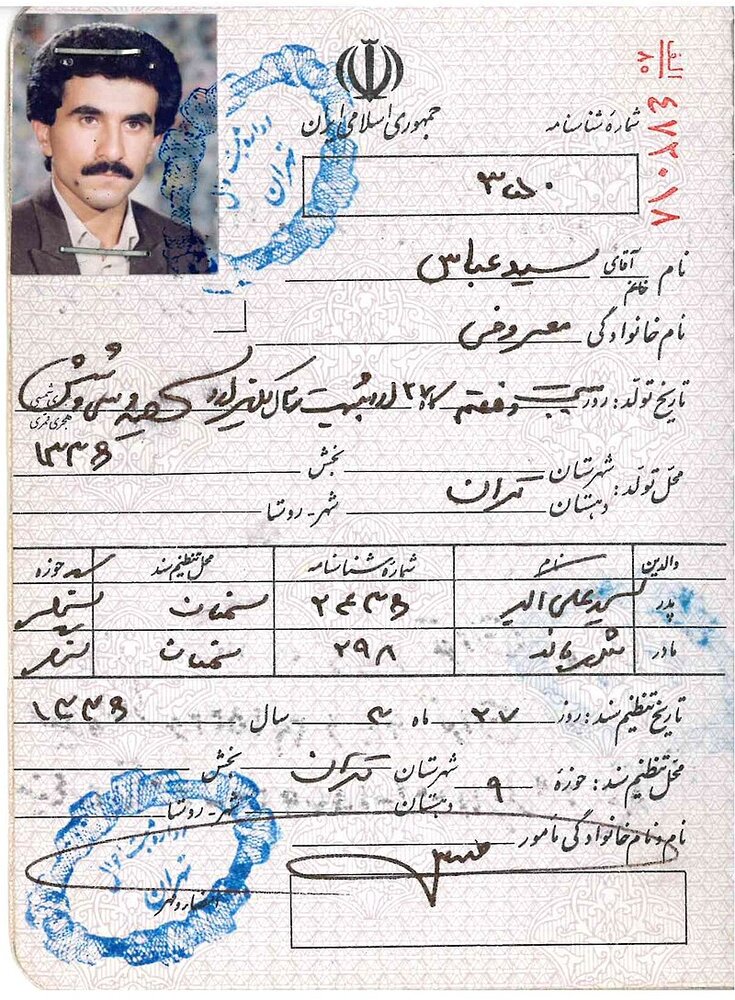 الف
۸۰
۴۷۲۰۱۸
جمهوری اسلامی ایران
شمارهٔ شناسنامه
اداره ثبت احوال تهران
نام آقای خانم سید عباس
نام خانوادگی معروفی
تاریخ تولد: روز بیست و هفتم ۲۷ ماه اردیبهشت سال یکهزار و سیصد و سی و شش
هجری شمسی
هجری قمری
۱۳۳۶
محل تولد: شهرستان تهران بخش
دهستان شهر - روستا
والدین نام شمارهٔ شناسنامه محل تنظیم سند حوزه
پدر سید علی اکبر ۲۴۳۶ سمنان سنگسر
مادر ۲۹۸ سمنان سنگسر
تاریخ تنظیم سند: روز ۲۷ ماه ۳ سال ۱۳۳۶
محل تنظیم سند: حوزهٔ ۹ شهرستان تهران بخش
دهستان شهر - روستا
نام و نام خانوادگی مأمور
اداره ثبت احوال تهران
امضاء و مهر